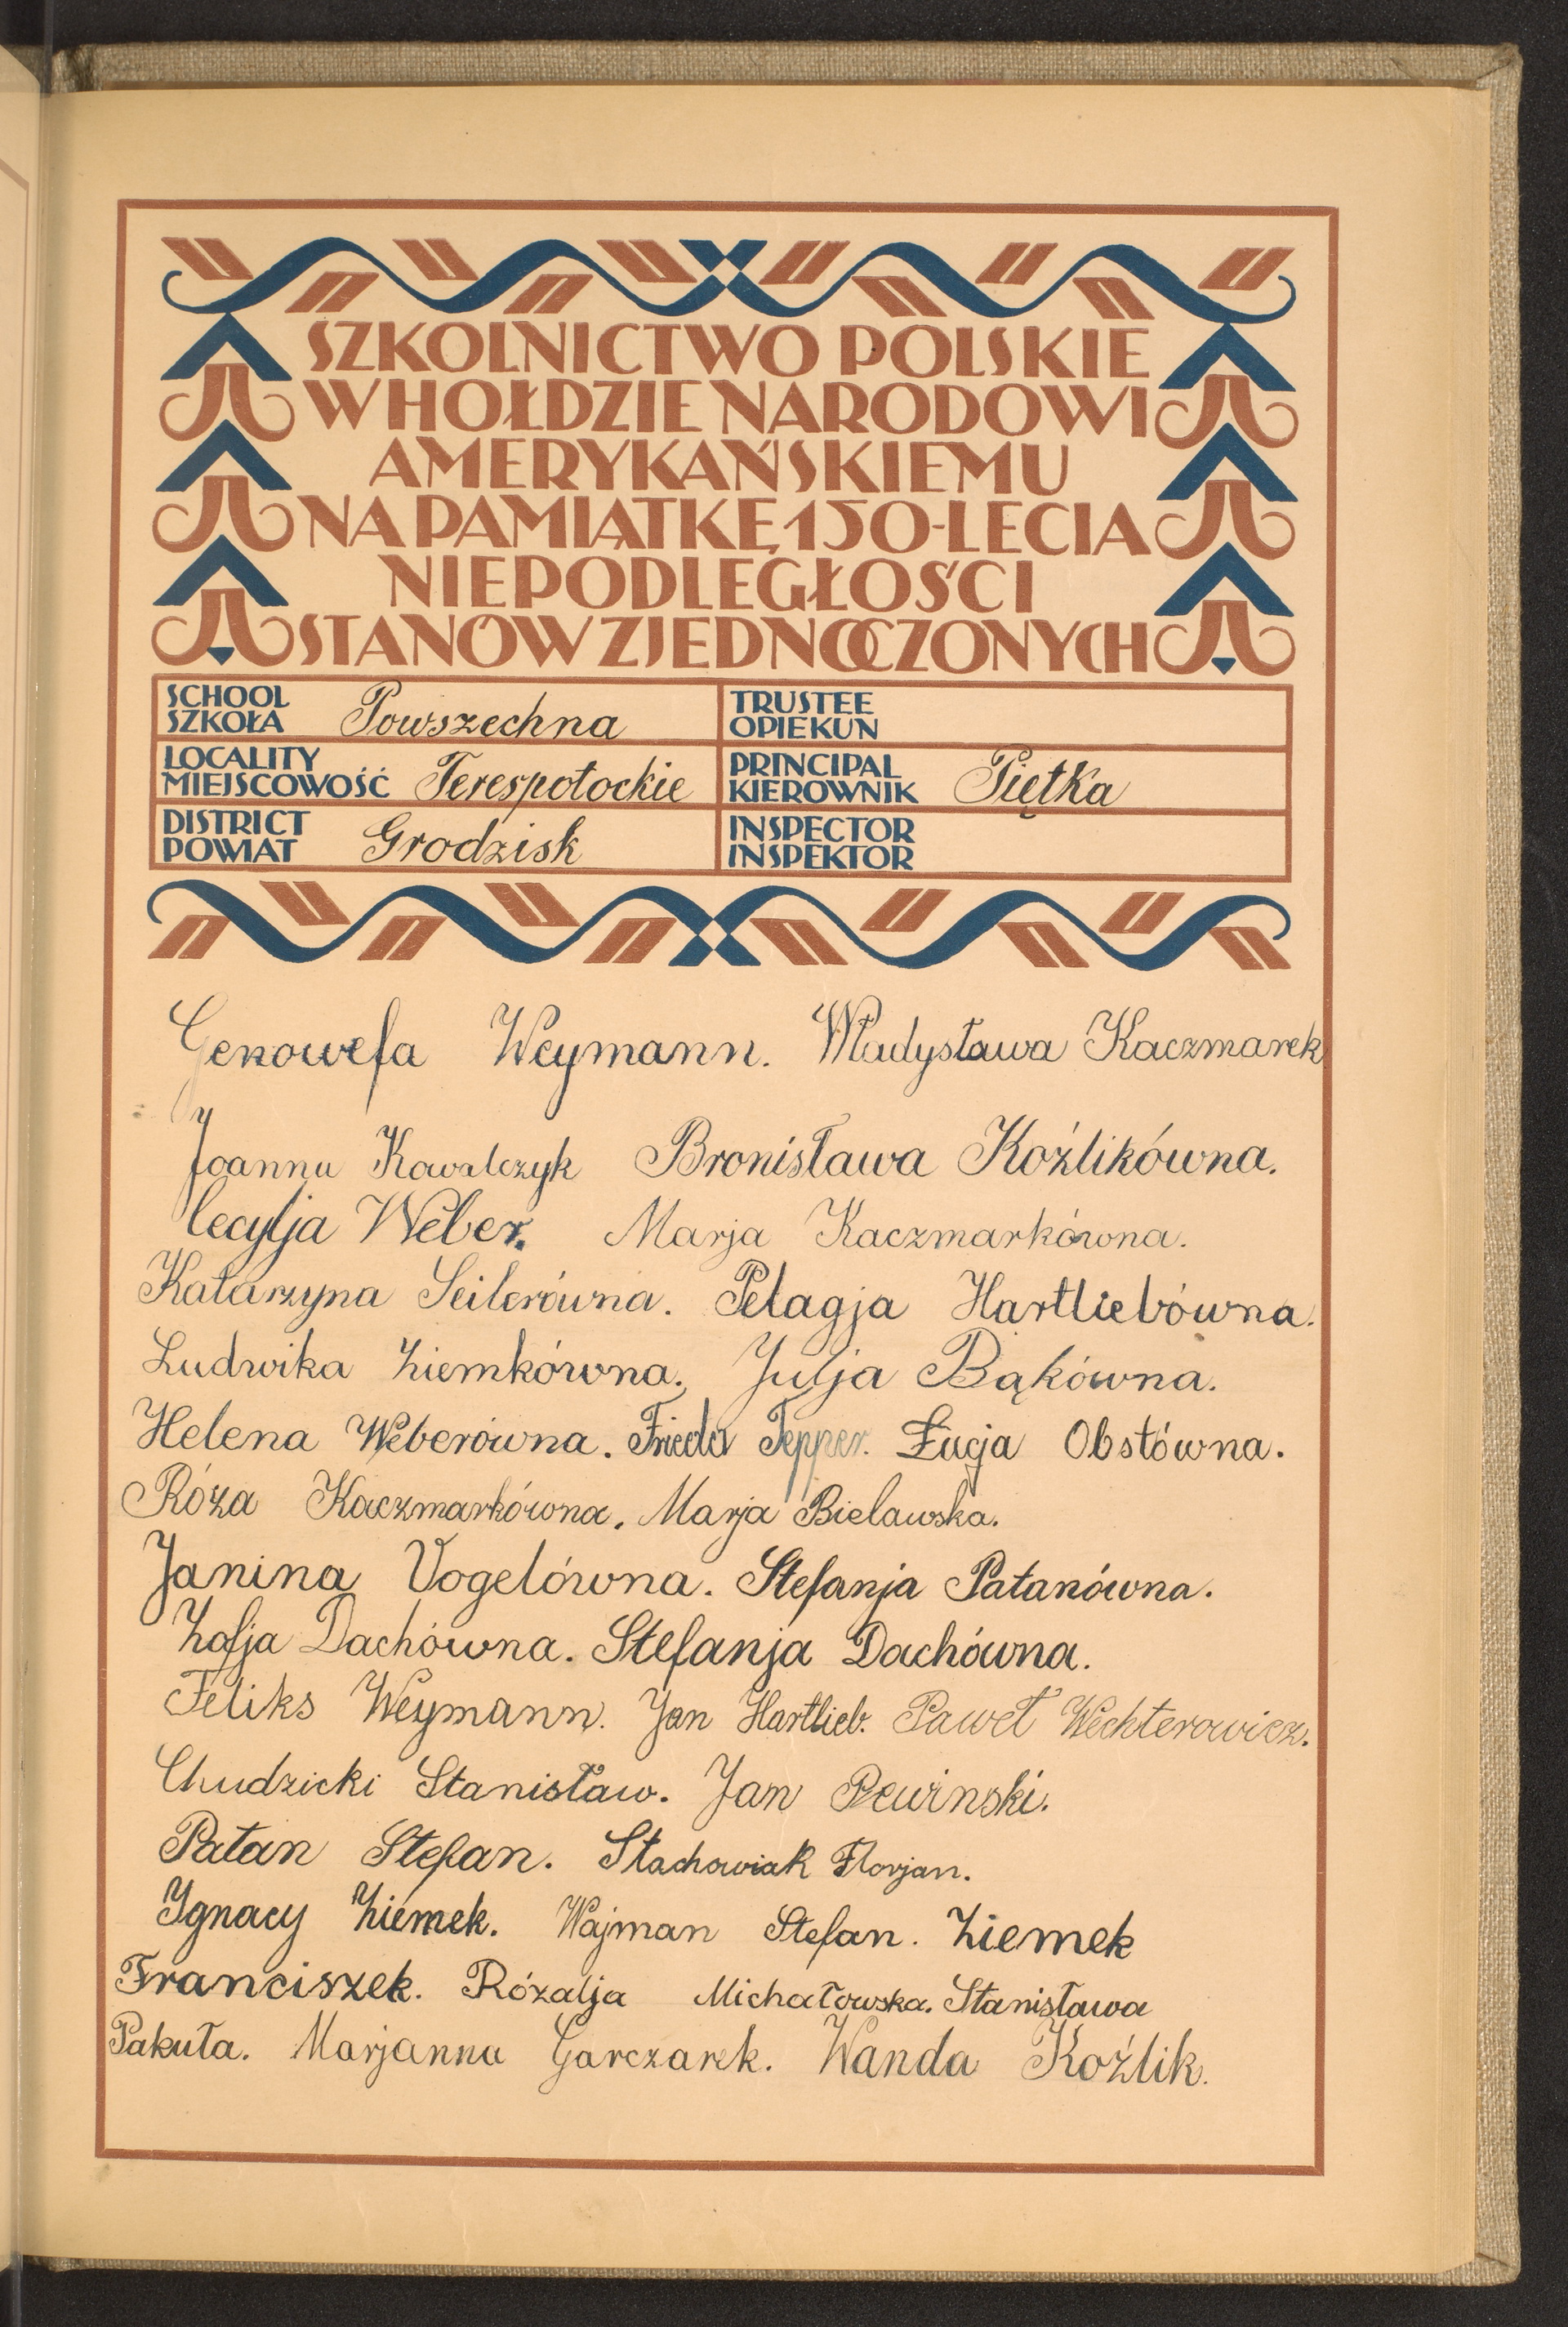 SZKOLNICTWO POLSKIE
W HOŁDZIE NARODOWI
AMERYKAŃSKIEMU
NA PAMIĄTKĘ 150-LECIA
NIEPODLEGŁOŚCI
STANÓW ZJEDNOCZONYCH
SCHOOL
SZKOŁA Powszechna
TRUSTEE
OPIEKUN
LOCALITY
MIEJSCOWOŚĆ Terespotockie
PRINCIPAL
KIEROWNIK Piętka
DISTRICT
POWIAT Grodzisk
INSPECTOR
INSPEKTOR
Genowefa Weymann. Władysława Kaczmarek
Joanna Kowalczyk Bronisława Koźlikówna.
Cecylja Weber. Marja Kaczmarkówna.
Katarzyna Seilerówna. Pelagja Hartliebówna.
Ludwika Ziemkówna. Julja Bąkówna.
Helena Weberówna. Frieda Tepper. Łucja Obstówna.
Róża Kaczmarkówna. Marja Bielawska.
Janina Vogelówna. Stefanja Patanówna.
Zofja Dachówna. Stefanja Dachówna.
Feliks Weymann. Jan Hartlieb. Paweł Wechterowicz.
Chudzicki Stanisław. Jan
Patan Stefan. Stachowiak Florjan.
Ignacy Ziemek. Wajman Stefan. Ziemek
Franciszek. Rózalja Michałowska. Stanisława
Pakuła. Marjanna Garczarek. Wanda Koźlik.